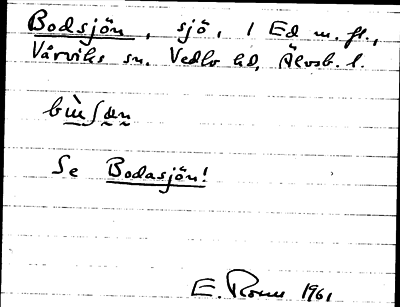 Bodsjön, sjö, i Ed m. fl.,
Vårviks sn. Vedbo hd, Älvsb. l.
Se Bodasjön!
E. Rosen 1961